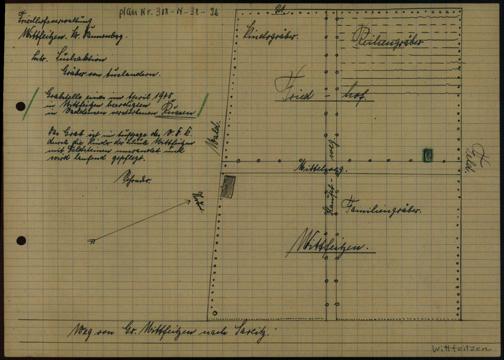 Plan Nr. 308-N-31-26
Friedhofsverwaltung
Wittfeitzen. Kr. Dannenberg.
Betr. Suchaktion
Gräber von Ausländern.
Grabstelle eines im April 1945
in Wittfeitzen beerdigten
verstorbenen Russen
Das Grab ist im Auftrage des
durch die Kinder der Schule Wittfeitzen
mit Feldsteinen umrandet und
wird laufend gepflegt.
Kindergräber.
Reihengräber
Fried - hof.
Wald.
Feld.
Mittelweg.
Haupt - weg
Familiengräber.
Wittfeitzen.
Weg von Gr. Wittfeitzen nach Sareitz.
Wittfeitzen